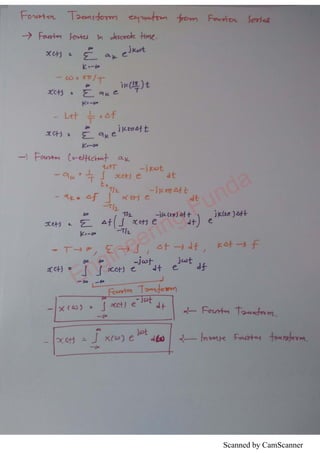 Fourier Transform equation from Fourier Series
→ Fourier Series in discrete time.
x(t) = ∞ Σ K=-∞ a_k e^{jkωt}
- ω = 2π/T
x(t) = ∞ Σ K=-∞ a_k e^{jk(2π/T)t}
- Let 1/T = Δf
x(t) = ∞ Σ K=-∞ a_k e^{jk2πΔf t}
→ Fourier Coefficient a_k
- a_k = 1/T ∫_{t₀}^{t₀+T} x(t) e^{-jkωt} dt
- a_k = Δf ∫_{-T/2}^{T/2} x(t) e^{-jk2πΔf t} dt
x(t) = ∞ Σ K=-∞ Δf ( ∫_{-T/2}^{T/2} x(t) e^{-jk(2π)Δf t} dt ) e^{jk(2π)Δf t}
- T → ∞, Σ → ∫, Δf → df, kΔf → f
x(t) = ∫_{-∞}^{∞} ∫_{-∞}^{∞} x(t) e^{-jωt} dt e^{jωt} df
Fourier Transform
- X(ω) = ∫_{-∞}^{∞} x(t) e^{-jωt} dt ← Fourier Transform.
- x(t) = ∫_{-∞}^{∞} X(ω) e^{jωt} dω ← Inverse Fourier transform.
Engineering Funda
Scanned by CamScanner